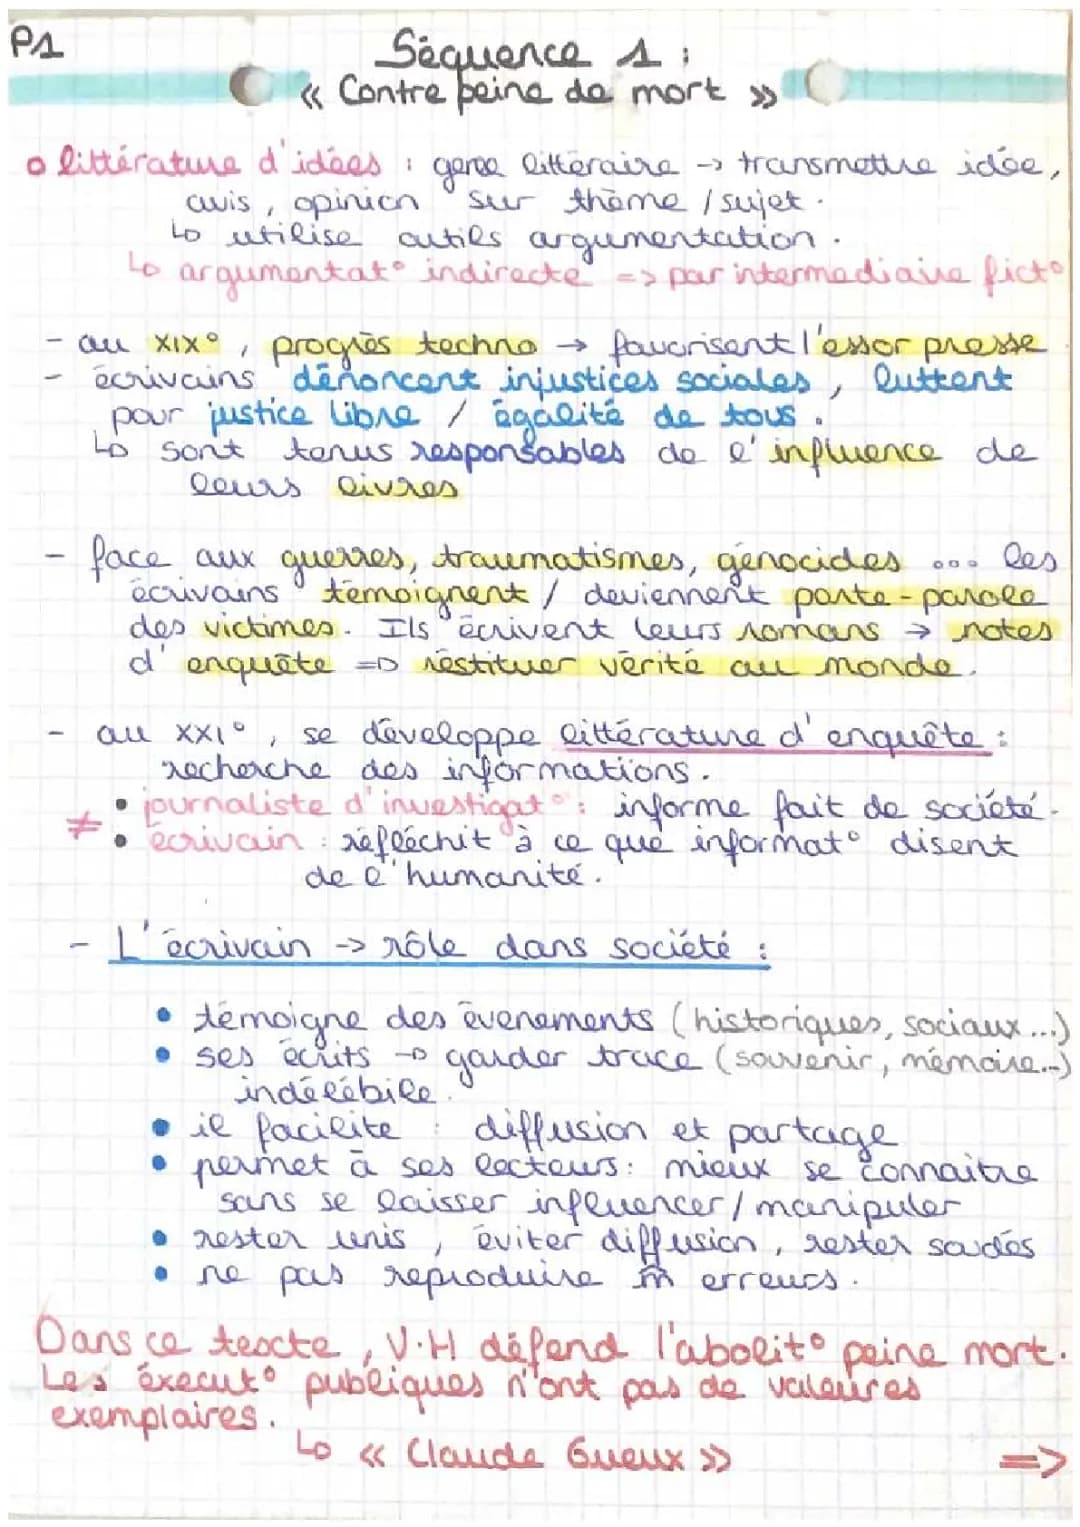 P1
Séquence 1 :
« Contre peine de mort »
o littérature d'idées : genre littéraire -> transmettre idée,
avis, opinion sur thème / sujet.
↳ utilise outils argumentation.
↳ argumentat° indirecte => par intermediaire fict°
- au XIX°, progrès techno → favorisent l'essor presse
- écrivains dénoncent injustices sociales, luttent
pour justice libre / égalité de tous.
↳ sont tenus responsables de l'influence de
leurs livres
- face aux guerres, traumatismes, génocides ... les
écrivains témoignent / deviennent porte-parole
des victimes. Ils écrivent leurs romans → notes
d'enquête => restituer vérité au monde.
- au XXI°, se développe littérature d'enquête :
recherche des informations.
≠ • journaliste d'investigat° : informe fait de société.
• écrivain : réfléchit à ce que informat° disent
de l'humanité.
- L'écrivain -> rôle dans société :
• témoigne des évenements (historiques, sociaux...)
• ses écrits → garder trace (souvenir, mémoire...)
indélébile.
• il facilite : diffusion et partage
• permet à ses lecteurs : mieux se connaitre
sans se laisser influencer / manipuler
• rester unis, éviter diffusion, rester soudés
• ne pas reproduire m̂ erreurs.
Dans ce texte, V.H défend l'abolit° peine mort.
Les éxecut° publiques n'ont pas de valeures
exemplaires.
↳ « Claude Gueux » =>